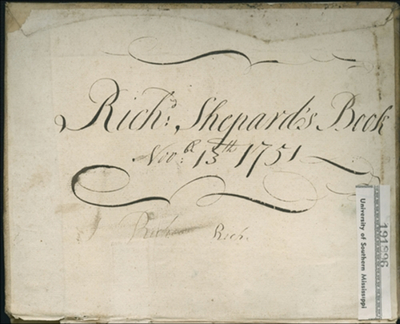 Rich.d Shepard's Book
Nov.br 13th 1751
Rich.
191826
University of Southern Mississippi